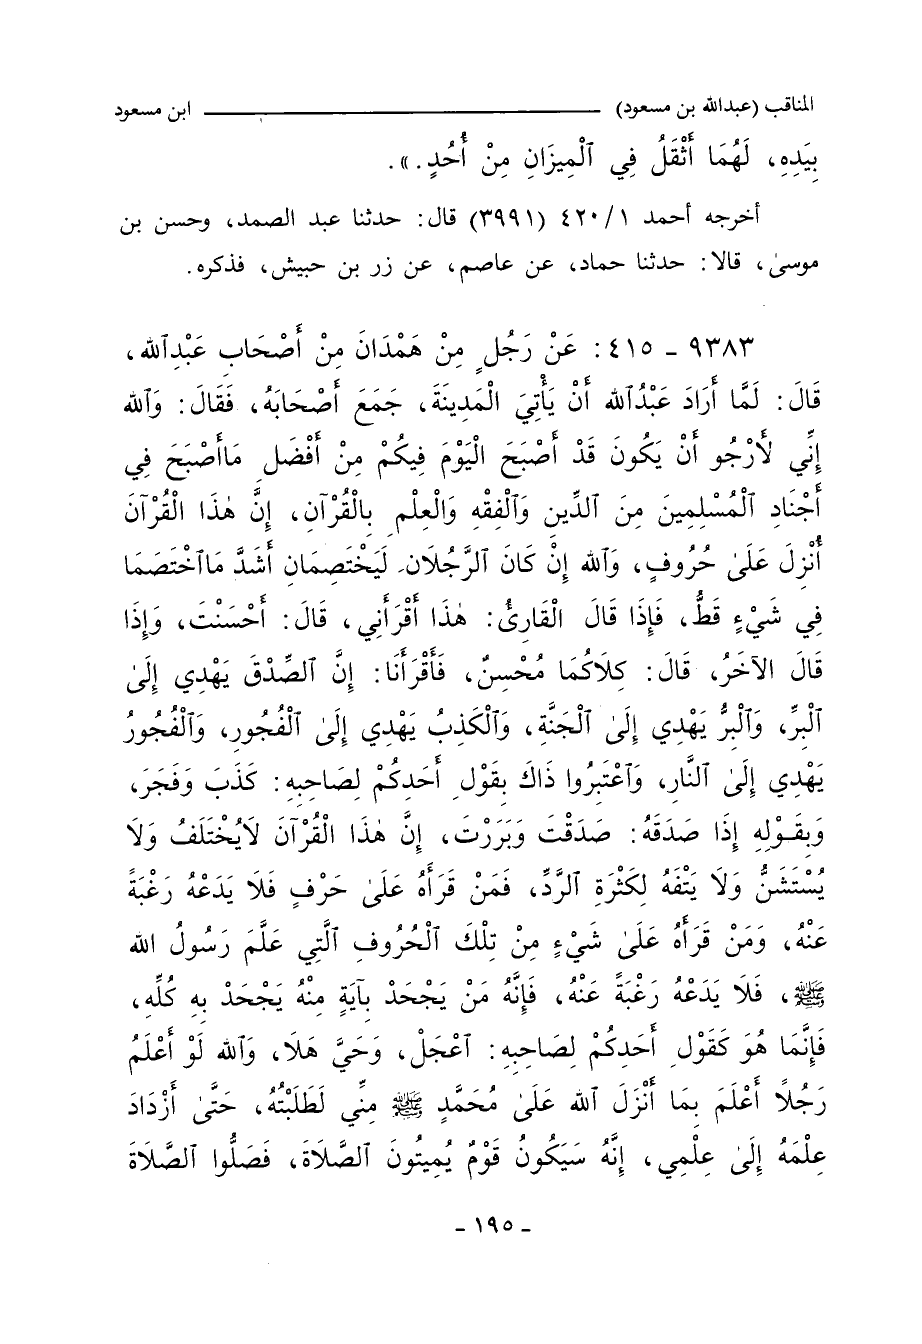 المناقب (عبدالله بن مسعود) ــــــــــــــــ ابن مسعود
بِيَدِهِ، لَهُمَا أَثْقَلُ فِي ٱلْمِيزَانِ مِنْ أُحُدٍ.».
أخرجه أحمد ٤٢٠/١ (٣٩٩١) قال: حدثنا عبد الصمد، وحسن بن
موسىٰ، قالا: حدثنا حماد، عن عاصم، عن زر بن حبيش، فذكره.
٩٣٨٣ - ٤١٥: عَنْ رَجُلٍ مِنْ هَمْدَانَ مِنْ أَصْحَابِ عَبْدِٱلله،
قَالَ: لَمَّا أَرَادَ عَبْدُٱلله أَنْ يَأْتِيَ الْمَدِينَةَ، جَمَعَ أَصْحَابَهُ، فَقَالَ: وَٱلله
إِنِّي لَأَرْجُو أَنْ يَكُونَ قَدْ أَصْبَحَ الْيَوْمَ فِيكُمْ مِنْ أَفْضَلِ مَاأَصْبَحَ فِي
أَجْنَادِ ٱلْمُسْلِمِينَ مِنَ ٱلدِّينِ وَٱلْفِقْهِ وَٱلْعِلْمِ بِالْقُرْآنِ، إِنَّ هٰذَا الْقُرْآنَ
أُنْزِلَ عَلَىٰ حُرُوفٍ، وَٱلله إِنْ كَانَ ٱلرَّجُلَانِ لَيَخْتَصِمَانِ أَشَدَّ مَاٱخْتَصَمَا
فِي شَيْءٍ قَطُّ، فَإِذَا قَالَ الْقَارِئُ: هٰذَا أَقْرَأَنِي، قَالَ: أَحْسَنْتَ، وَإِذَا
قَالَ الآخَرُ، قَالَ: كِلَاكُمَا مُحْسِنٌ، فَأَقْرَأَنَا: إِنَّ ٱلصِّدْقَ يَهْدِي إِلَىٰ
ٱلْبِرِّ، وَٱلْبِرُّ يَهْدِي إِلَىٰ ٱلْجَنَّةِ، وَٱلْكَذِبُ يَهْدِي إِلَىٰ ٱلْفُجُورِ، وَٱلْفُجُورُ
يَهْدِي إِلَىٰ ٱلنَّارِ، وَٱعْتَبِرُوا ذَاكَ بِقَوْلِ أَحَدِكُمْ لِصَاحِبِهِ: كَذَبَ وَفَجَرَ،
وَبِقَوْلِهِ إِذَا صَدَقَهُ: صَدَقْتَ وَبَرَرْتَ، إِنَّ هٰذَا الْقُرْآنَ لَايَخْتَلِفُ وَلَا
يُسْتَشَنُّ وَلَا يَتْفَهُ لِكَثْرَةِ ٱلرَّدِّ، فَمَنْ قَرَأَهُ عَلَىٰ حَرْفٍ فَلَا يَدَعْهُ رَغْبَةً
عَنْهُ، وَمَنْ قَرَأَهُ عَلَىٰ شَيْءٍ مِنْ تِلْكَ ٱلْحُرُوفِ ٱلَّتِي عَلَّمَ رَسُولُ الله
ﷺ، فَلَا يَدَعْهُ رَغْبَةً عَنْهُ، فَإِنَّهُ مَنْ يَجْحَدْ بِآيَةٍ مِنْهُ يَجْحَدْ بِهِ كُلِّهِ،
فَإِنَّمَا هُوَ كَقَوْلِ أَحَدِكُمْ لِصَاحِبِهِ: ٱعْجَلْ، وَحَيَّ هَلَا، وَٱلله لَوْ أَعْلَمُ
رَجُلًا أَعْلَمَ بِمَا أَنْزَلَ ٱلله عَلَىٰ مُحَمَّدٍ ﷺ مِنِّي لَطَلَبْتُهُ، حَتَّىٰ أَزْدَادَ
عِلْمَهُ إِلَىٰ عِلْمِي، إِنَّهُ سَيَكُونُ قَوْمٌ يُمِيتُونَ ٱلصَّلَاةَ، فَصَلُّوا ٱلصَّلَاةَ
- ١٩٥ -